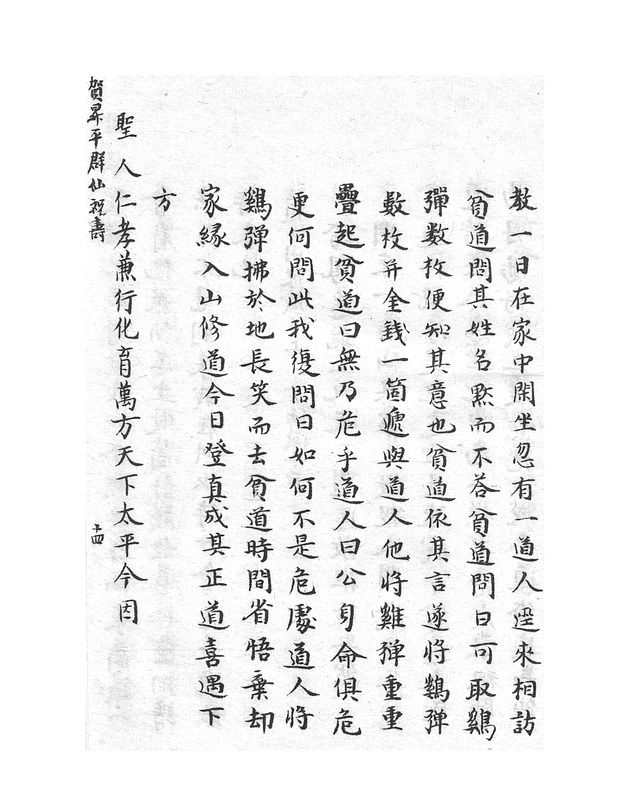 教一日在家中閑坐忽有一道人逕來相訪
貧道問其姓名默而不荅貧道問曰可取鷄
彈数枚便知其意也貧道依其言遂將鷄彈
数枚并金錢一箇遞與道人他將雞彈重重
疊起貧道曰無乃危乎道人曰公身命俱危
更何問此我復問曰如何不是危處道人將
鷄彈拂於地長笑而去貧道時間省悟棄却
家緣入山修道今日登真成其正道喜遇下
方
聖人仁孝兼行化育萬方天下太平今因
賀昇平群仙祝壽
十四